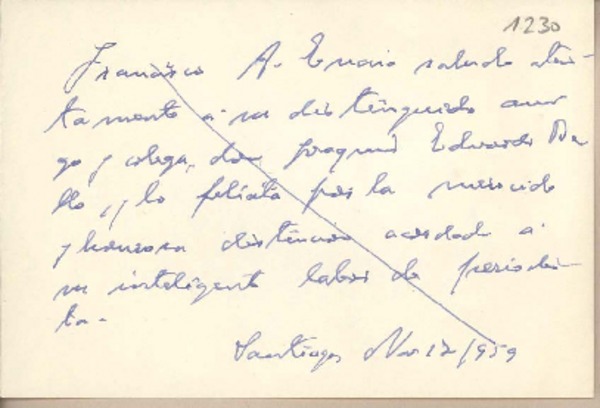 1230
Francisco A. Encina saluda aten-
tamente a su distinguido ami
go y colega, don Joaquín Edwards Be
llo, y lo felicita por la merecida
y honrosa distinción acordada a
su inteligente labor de periodis-
ta.-
Santiago, Nov 12/959